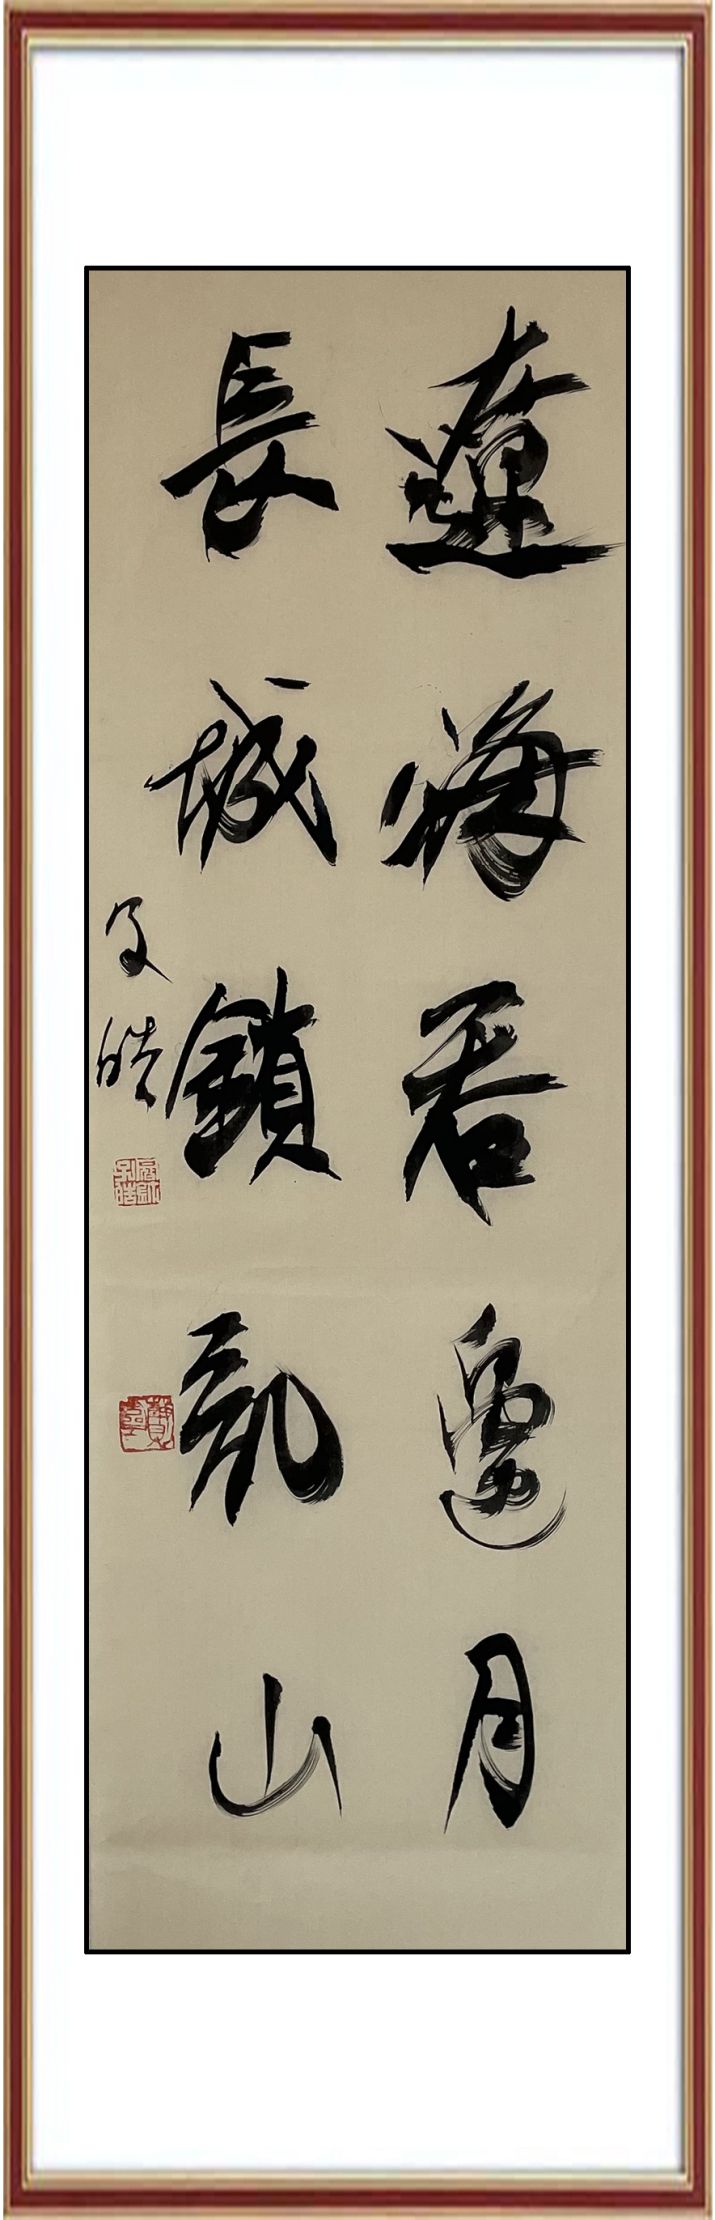 遼海吞邊月
長城鎖亂山
皓